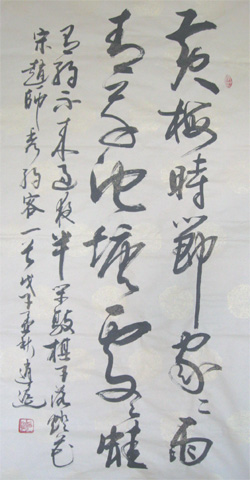 黄梅時節家〻雨
青草池塘處〻蛙
有約不来過夜半閑敲棋子落燈花
宋趙師秀約客一首戊子